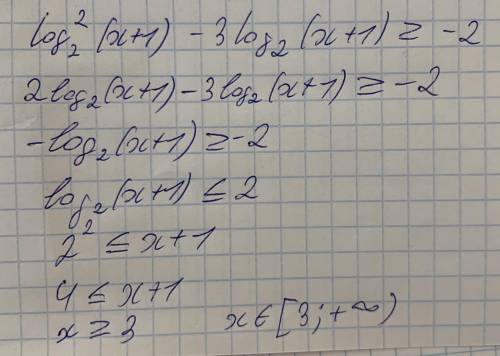 log₂²(x+1) - 3log₂(x+1) ≥ -2
2log₂(x+1) - 3log₂(x+1) ≥ -2
-log₂(x+1) ≥ -2
log₂(x+1) ≤ 2
2² ≤ x+1
4 ≤ x+1
x ≥ 3 x ∈ [3; +∞)